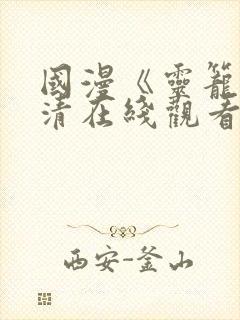 國漫《靈籠
清在綫觀看
西安-釜山